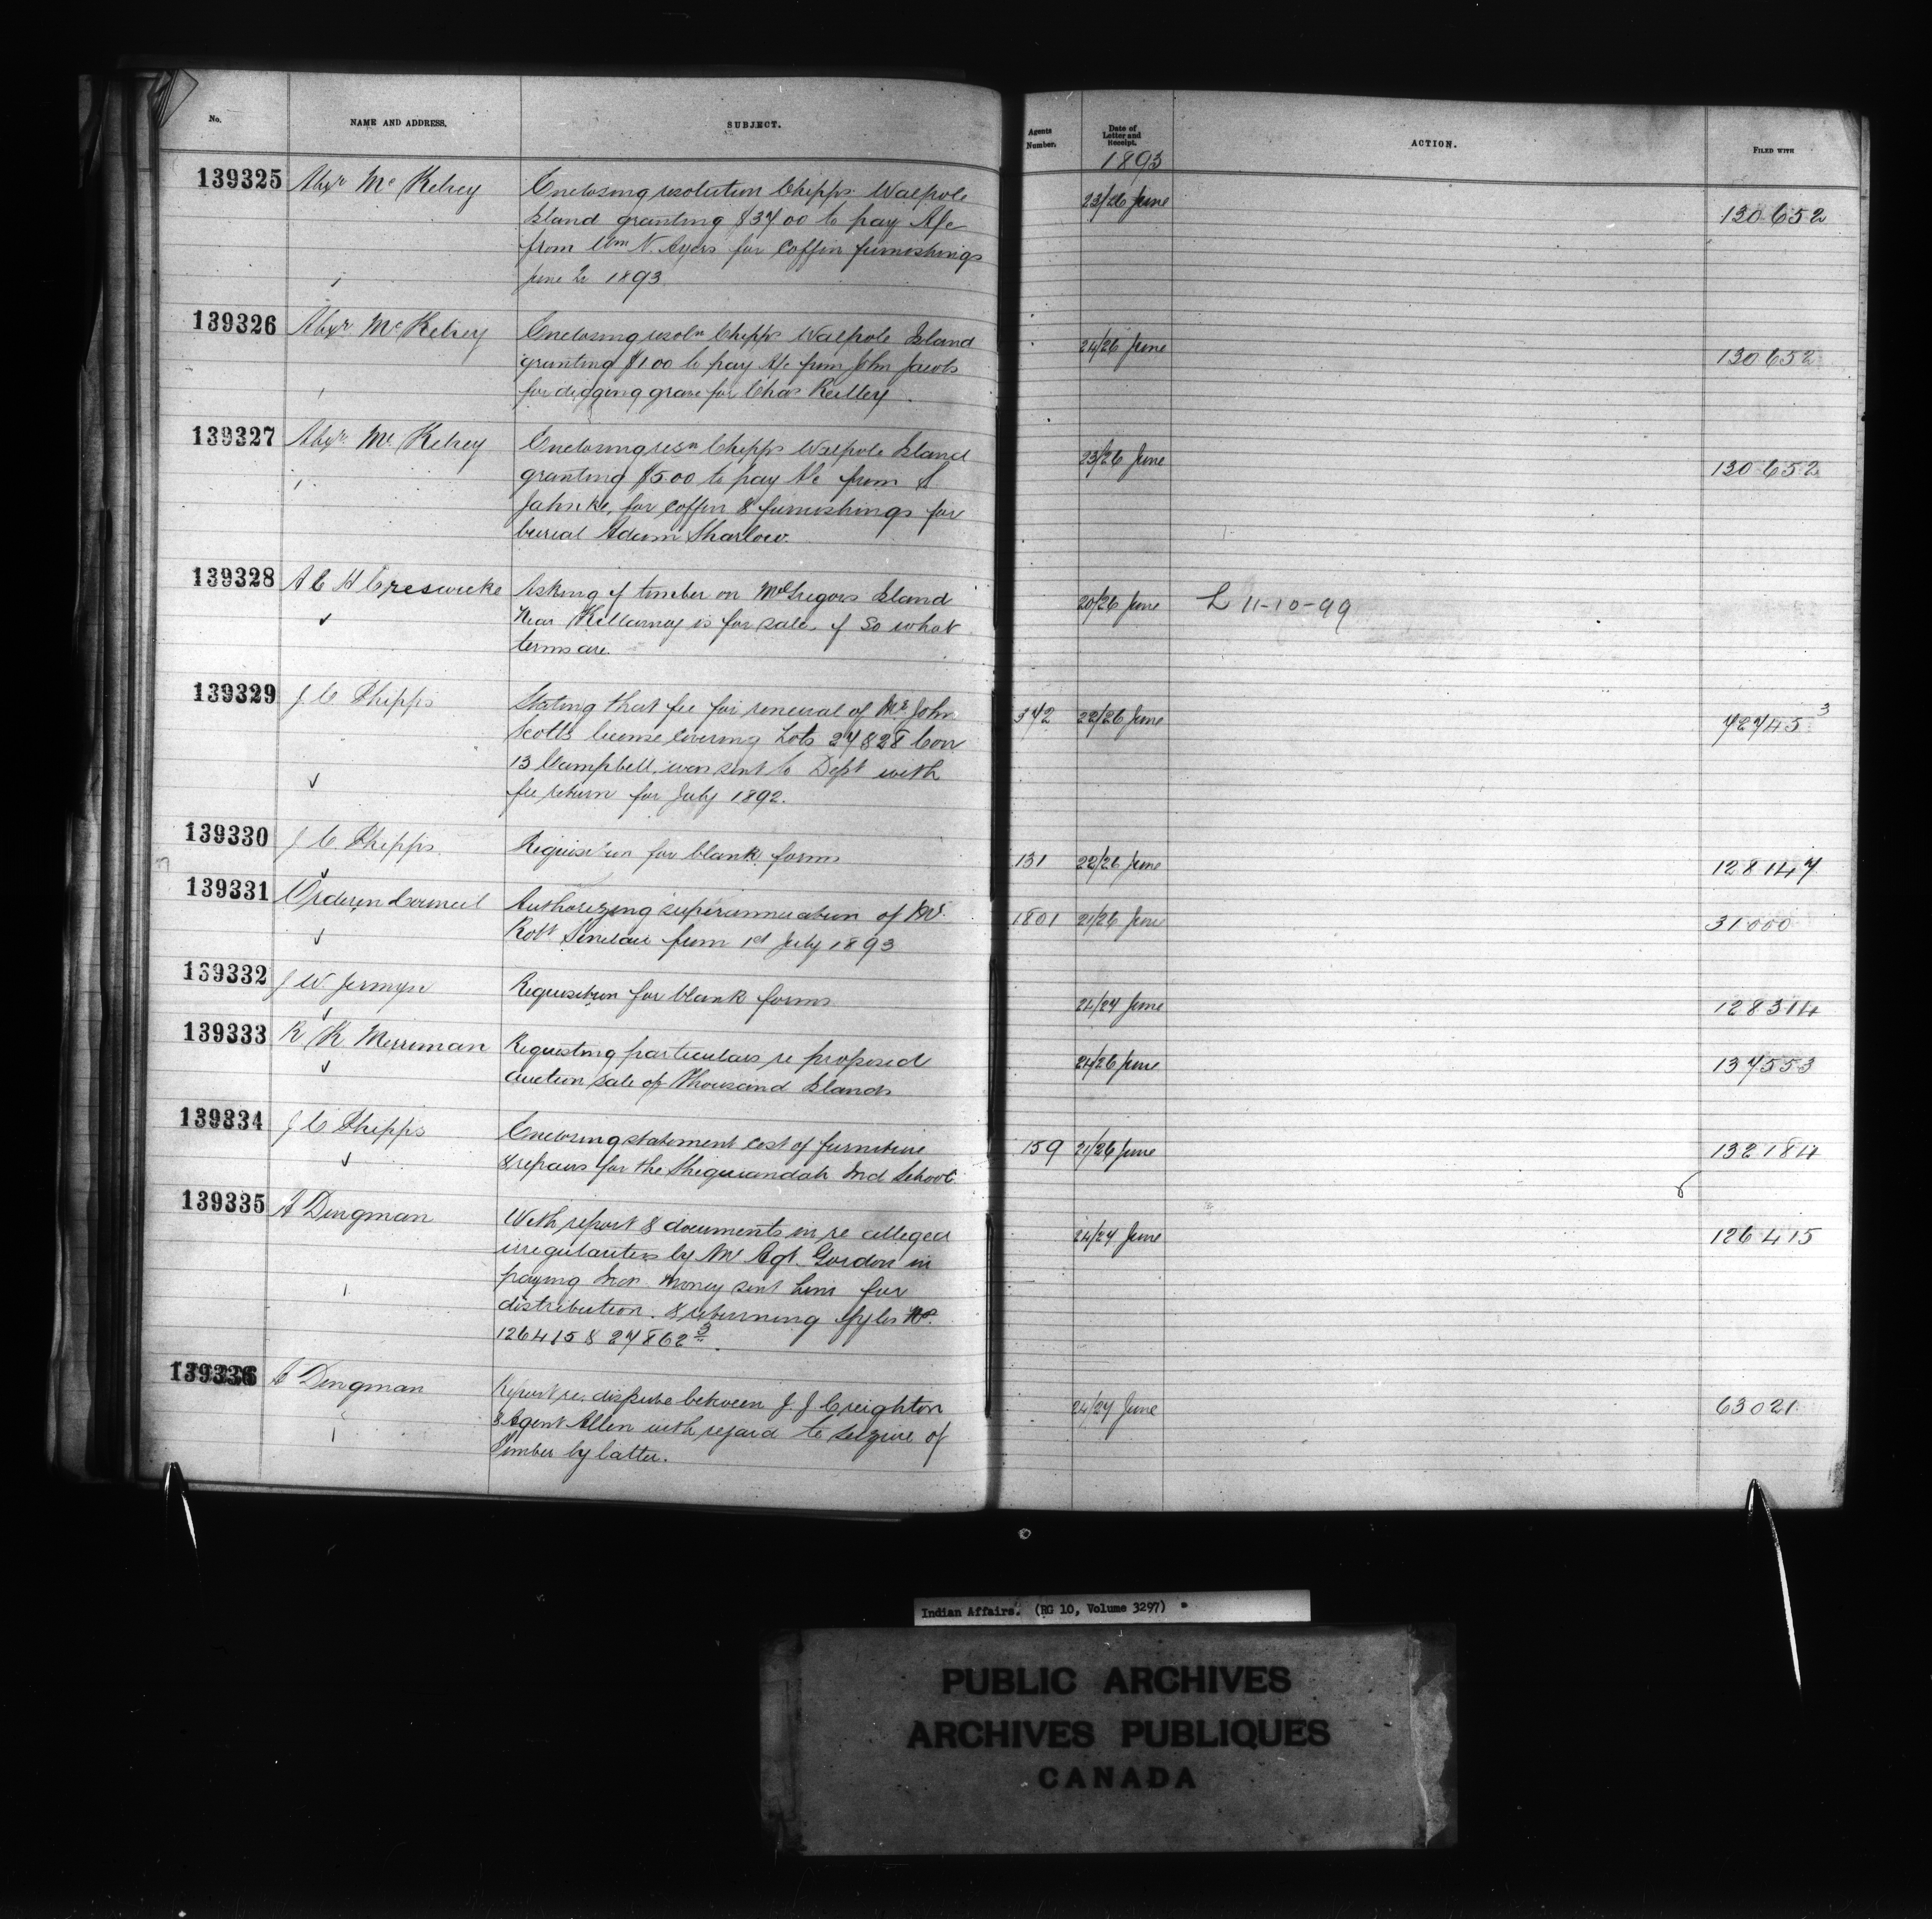 No. NAME AND ADDRESS. SUBJECT. Agents Number. Date of Letter and Receipt. ACTION. FILED WITH
1893
139325 Alexr Mc Kelvey Enclosing resolution Chipps Walpole 23/26 June 130652
Island granting $37 00 to pay A/c
from Wm N. Ayers for coffin furnishings
June 2 1893
139326 Alexr Mc Kelvey Enclosing resoln Chipps Walpole Island 24/26 June 130652
granting $1 00 to pay A/c from John Jacobs
for digging grave for Chas
139327 Alexr Mc Kelvey Enclosing resn Chipps Walpole Island 23/26 June 130652
granting $5.00 to pay A/c from S
Jahnke, for coffin & furnishings for
burial Adam Sharlow.
139328 A E H Creswicke Asking if timber on McGregors Island 20/26 June L 11-10-99
Near Killarney is for sale, if so what
terms are.
139329 J C Phipps Stating that fee for renewal of Mr John 342 22/26 June 72745 3
Scotts license covering Lots 27 & 28 Con
13 Campbell, was sent to Dept with
fee return for July 1892.
139330 J C. Phipps Requisition for blank forms 131 22/26 June 128147
139331 Order in Council Authorizing superannuation of Mr 1801 21/26 June 31000
Robt Sinclair from 1st July 1893
139332 J W. Jermyn Requisition for blank forms 24/27 June 128314
139333 R K Merriman Requesting particulars re proposed 24/26 June 137553
auction sale of Thousand Islands
139334 J C Phipps Enclosing statement cost of furniture 159 21/26 June 132184
& repairs for the Sheguiandah Ind School
139335 A Dingman With report & documents in re alleged 24/27 June 126415
irregularities by Mr Agt. Gordon in
paying Indn money sent him for
distribution. & returning fyles No.
126415 & 27862 3.
139336 A Dingman Report re. dispute between J. J. Creighton 24/27 June 63021
& Agent Allen with regard to seizure of
Timber by latter.
Indian Affairs. (RG 10, Volume 3297)
PUBLIC ARCHIVES
ARCHIVES PUBLIQUES
CANADA